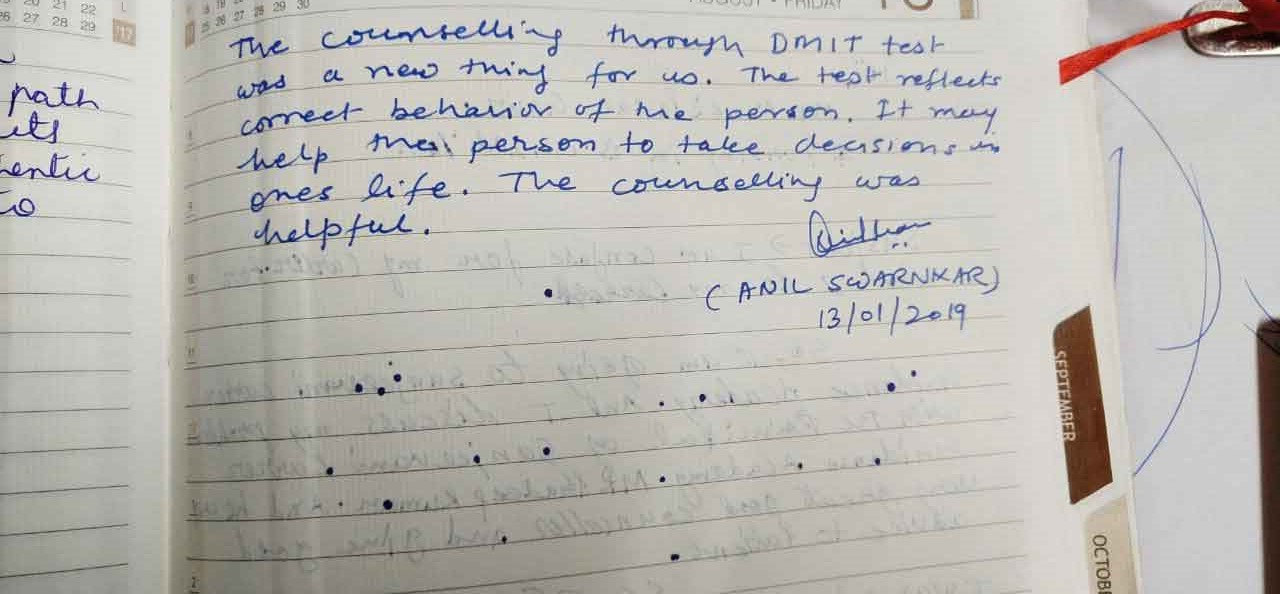 20 21 22
26 27 28 29
L
17
path
entic
18 19
25 26 27 28 29 30
AUGUST - FRIDAY
The counselling through DMIT test
was a new thing for us. The test reflects
correct behavior of the person. It may
help the person to take decisions in
ones life. The counselling was
helpful.
(ANIL SWARNKAR)
13/01/2019
8
9
10
11
2
SEPTEMBER
OCTOB